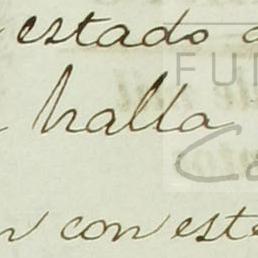 estado
halla
con este
FU